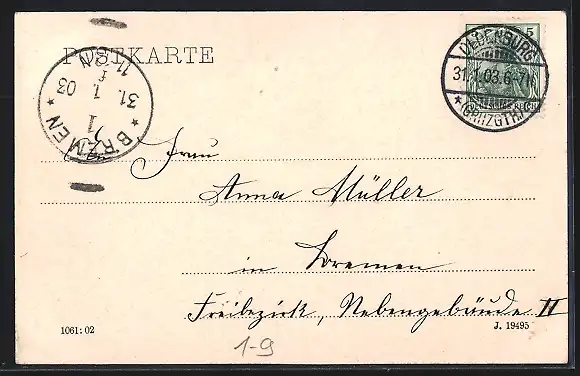 POSTKARTE
OLDENBURG
31.1.03.6-7N.
* (GRHZGTH.)
5
DEUTSCHES REICH
* BREMEN *
1
31. 1. 03
11-12N
An Frau
Anna Müller
in Bremen
Freibezirk, Nebengebäude II
1061:02
J. 19495
1-9